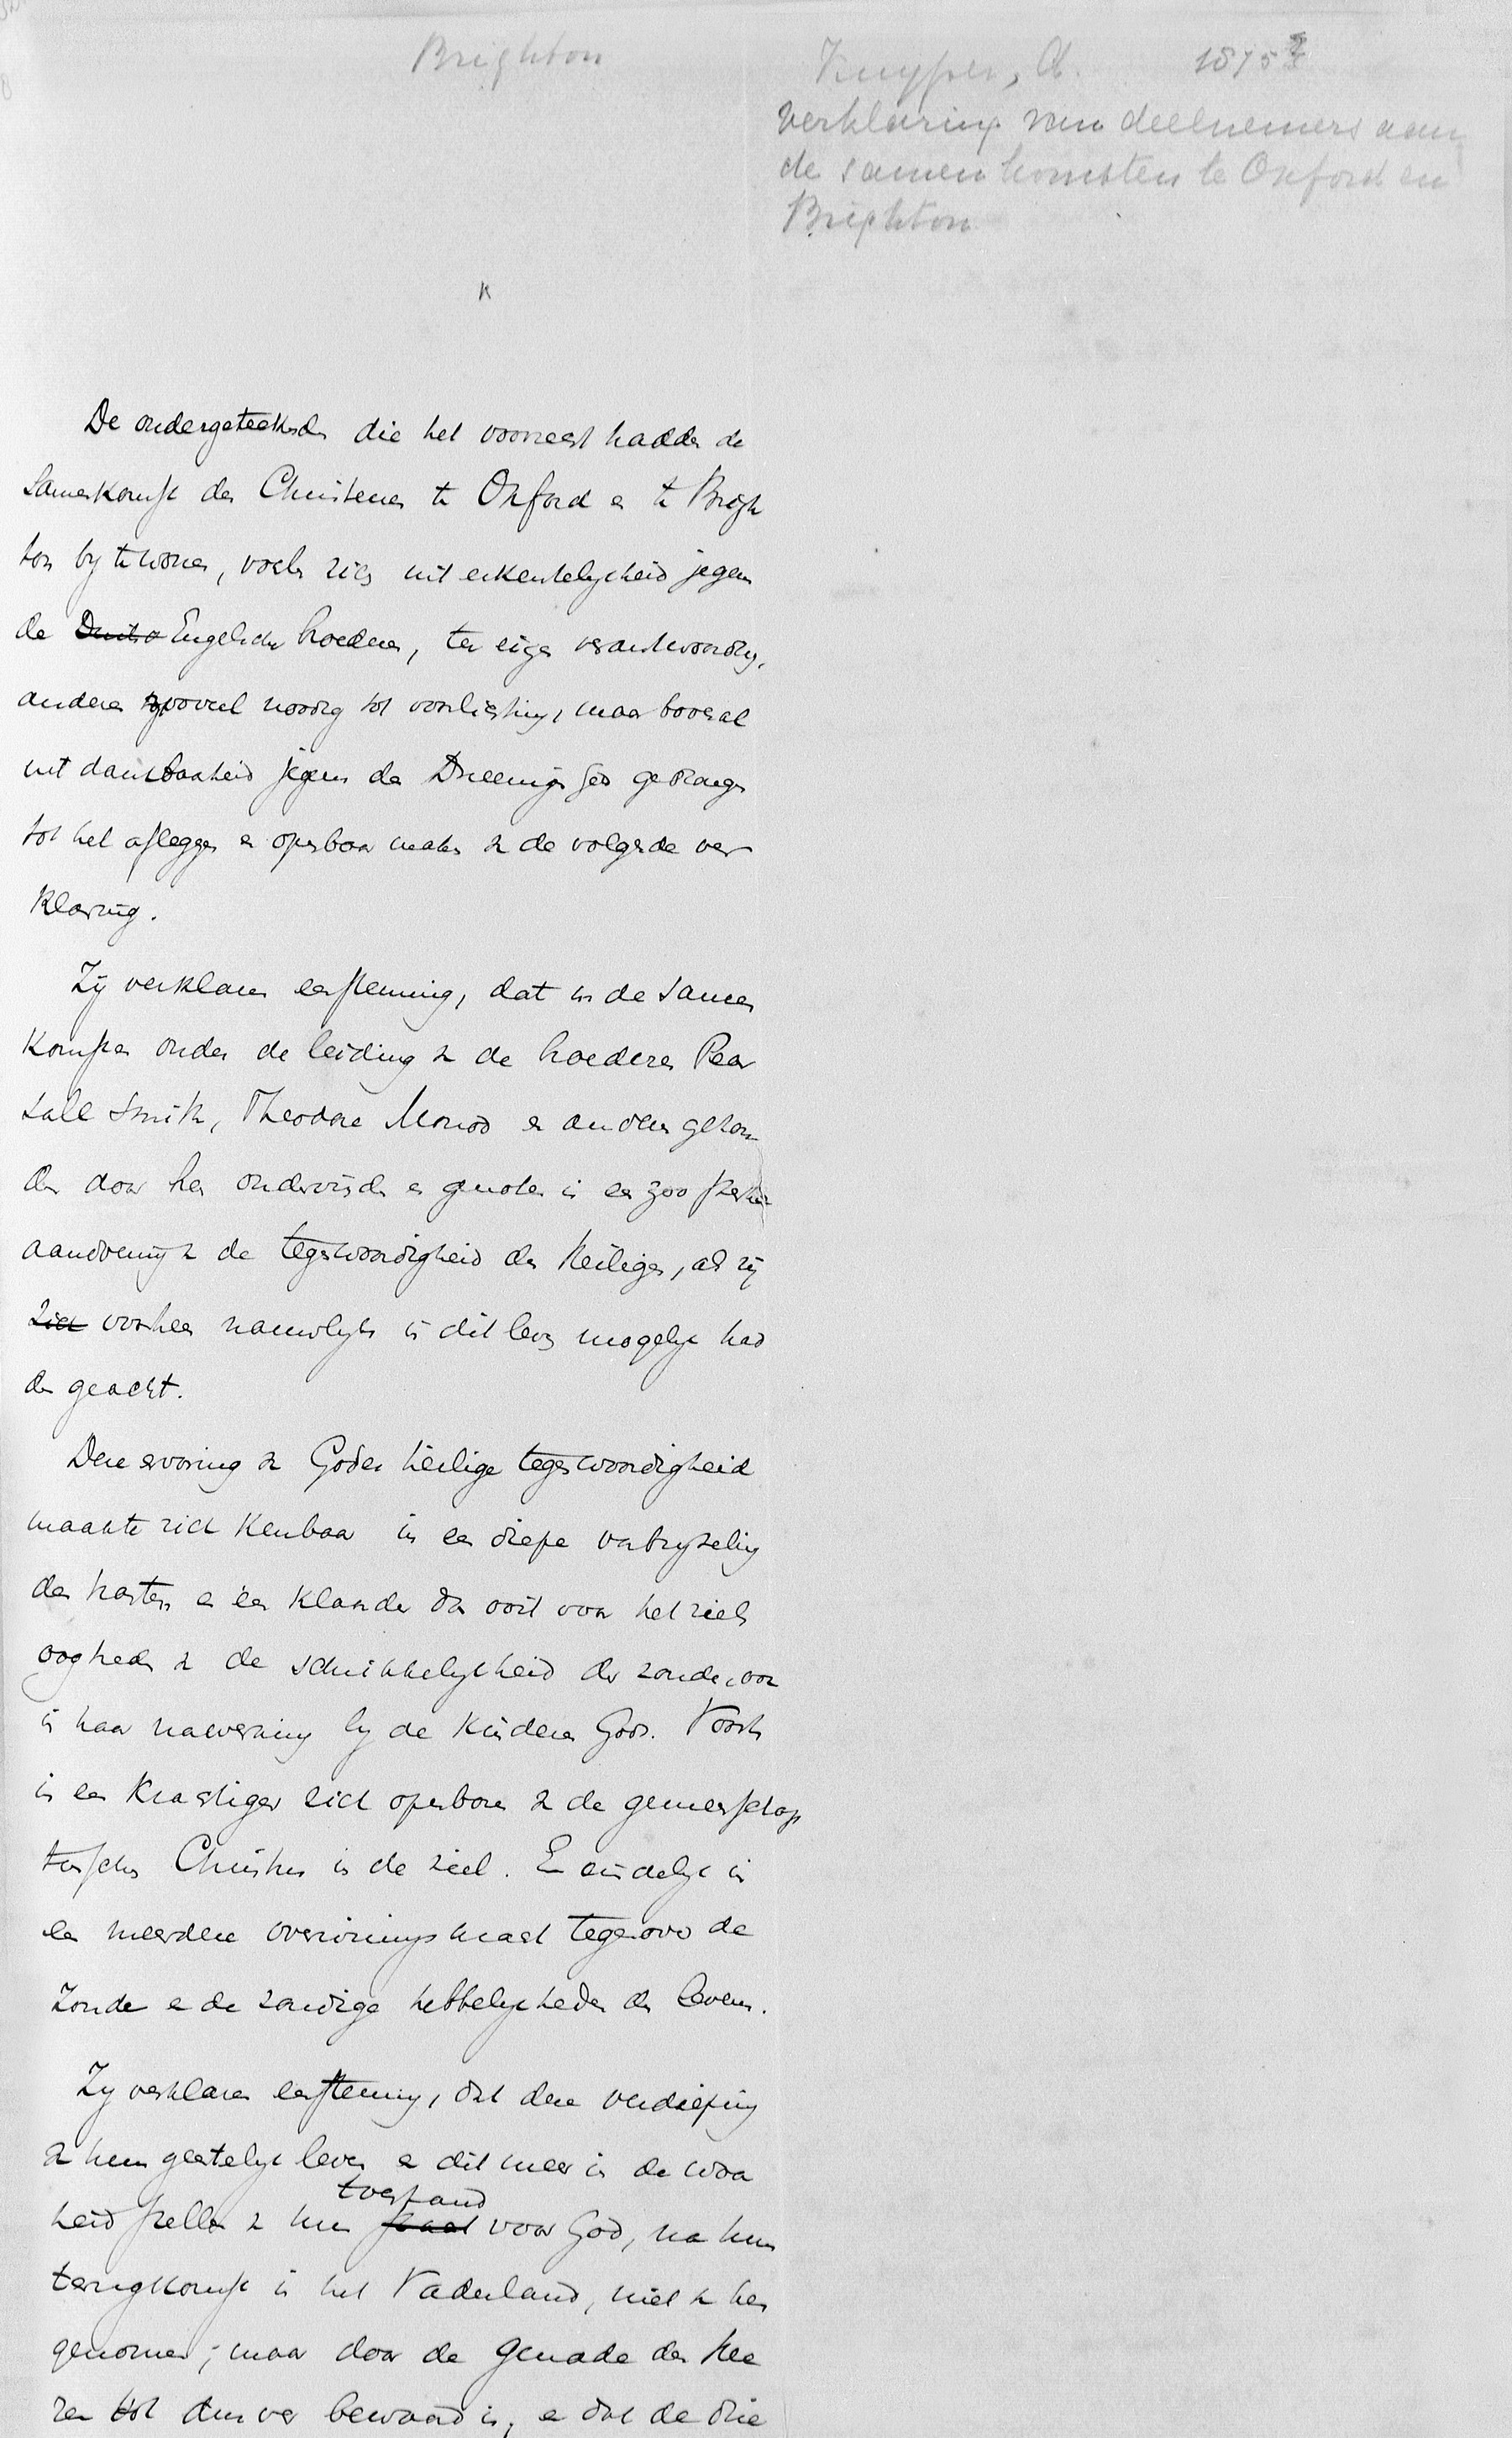 Brighton
Kuyper, A. 1875?
Verklaring van deelnemers aan
de samenkomsten te Oxford en
Brighton
De ondergeteekenden die het voorrecht hadden de
Samenkomst der Christenen te Oxford en te Brigh
ton by te wonen, voelen zich uit erkentelykheid jegens
de Engelsche broederen, ter eigen verantwoording,
anderen zooveel noodig tot voorlichting, maar bovenal
uit dankbaarheid jegens den Dreeenigen God gedrongen
tot het afleggen en openbaar maken van de volgende ver
klaring.
Zij verklaren eenstemmig, dat in de samen
komsten onder de leiding van de broederen Pear
sall Smith, Theodore Monod en anderen gehou
den door hen ondervonden en genoten is een zoo sterke
aandoening van de tegenwoordigheid des Heiligen, als zij
zich voorheen nauwlyks in dit leven mogelyk had
den geacht.
Deze ervaring van Godes heilige tegenwoordigheid
maakte zich kenbaar in een diepe verbryzeling
des harten en een klaarder dan ooit voor het ziels
oog treden van de schrikkelykheid der zonde, ook
in haar nawerking by de kinderen Gods. Voorts
in een krachtiger zich openbaren van de gemeenschap
tusschen Christus in de ziel. En eindelyk in
een meerdere overwinningskracht tegenover de
Zonde en de zondige hebbelykheden des levens.
Zy verklaren eenstemmig, dat deze verdieping
van hun geestelyk leven en dit meer in de waar
heid stellen van hun staat toestand voor God, na hun
terugkomst in het Vaderland, niet van hen
genomen; maar door de genade des Hee
ren tot dus ver bewaard is, en dat de drie